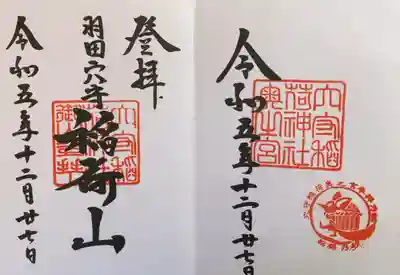 登拝
羽田穴守
稲荷山
令和五年十二月廿七日
令和五年十二月廿七日
穴守稲
荷神社
奥之宮